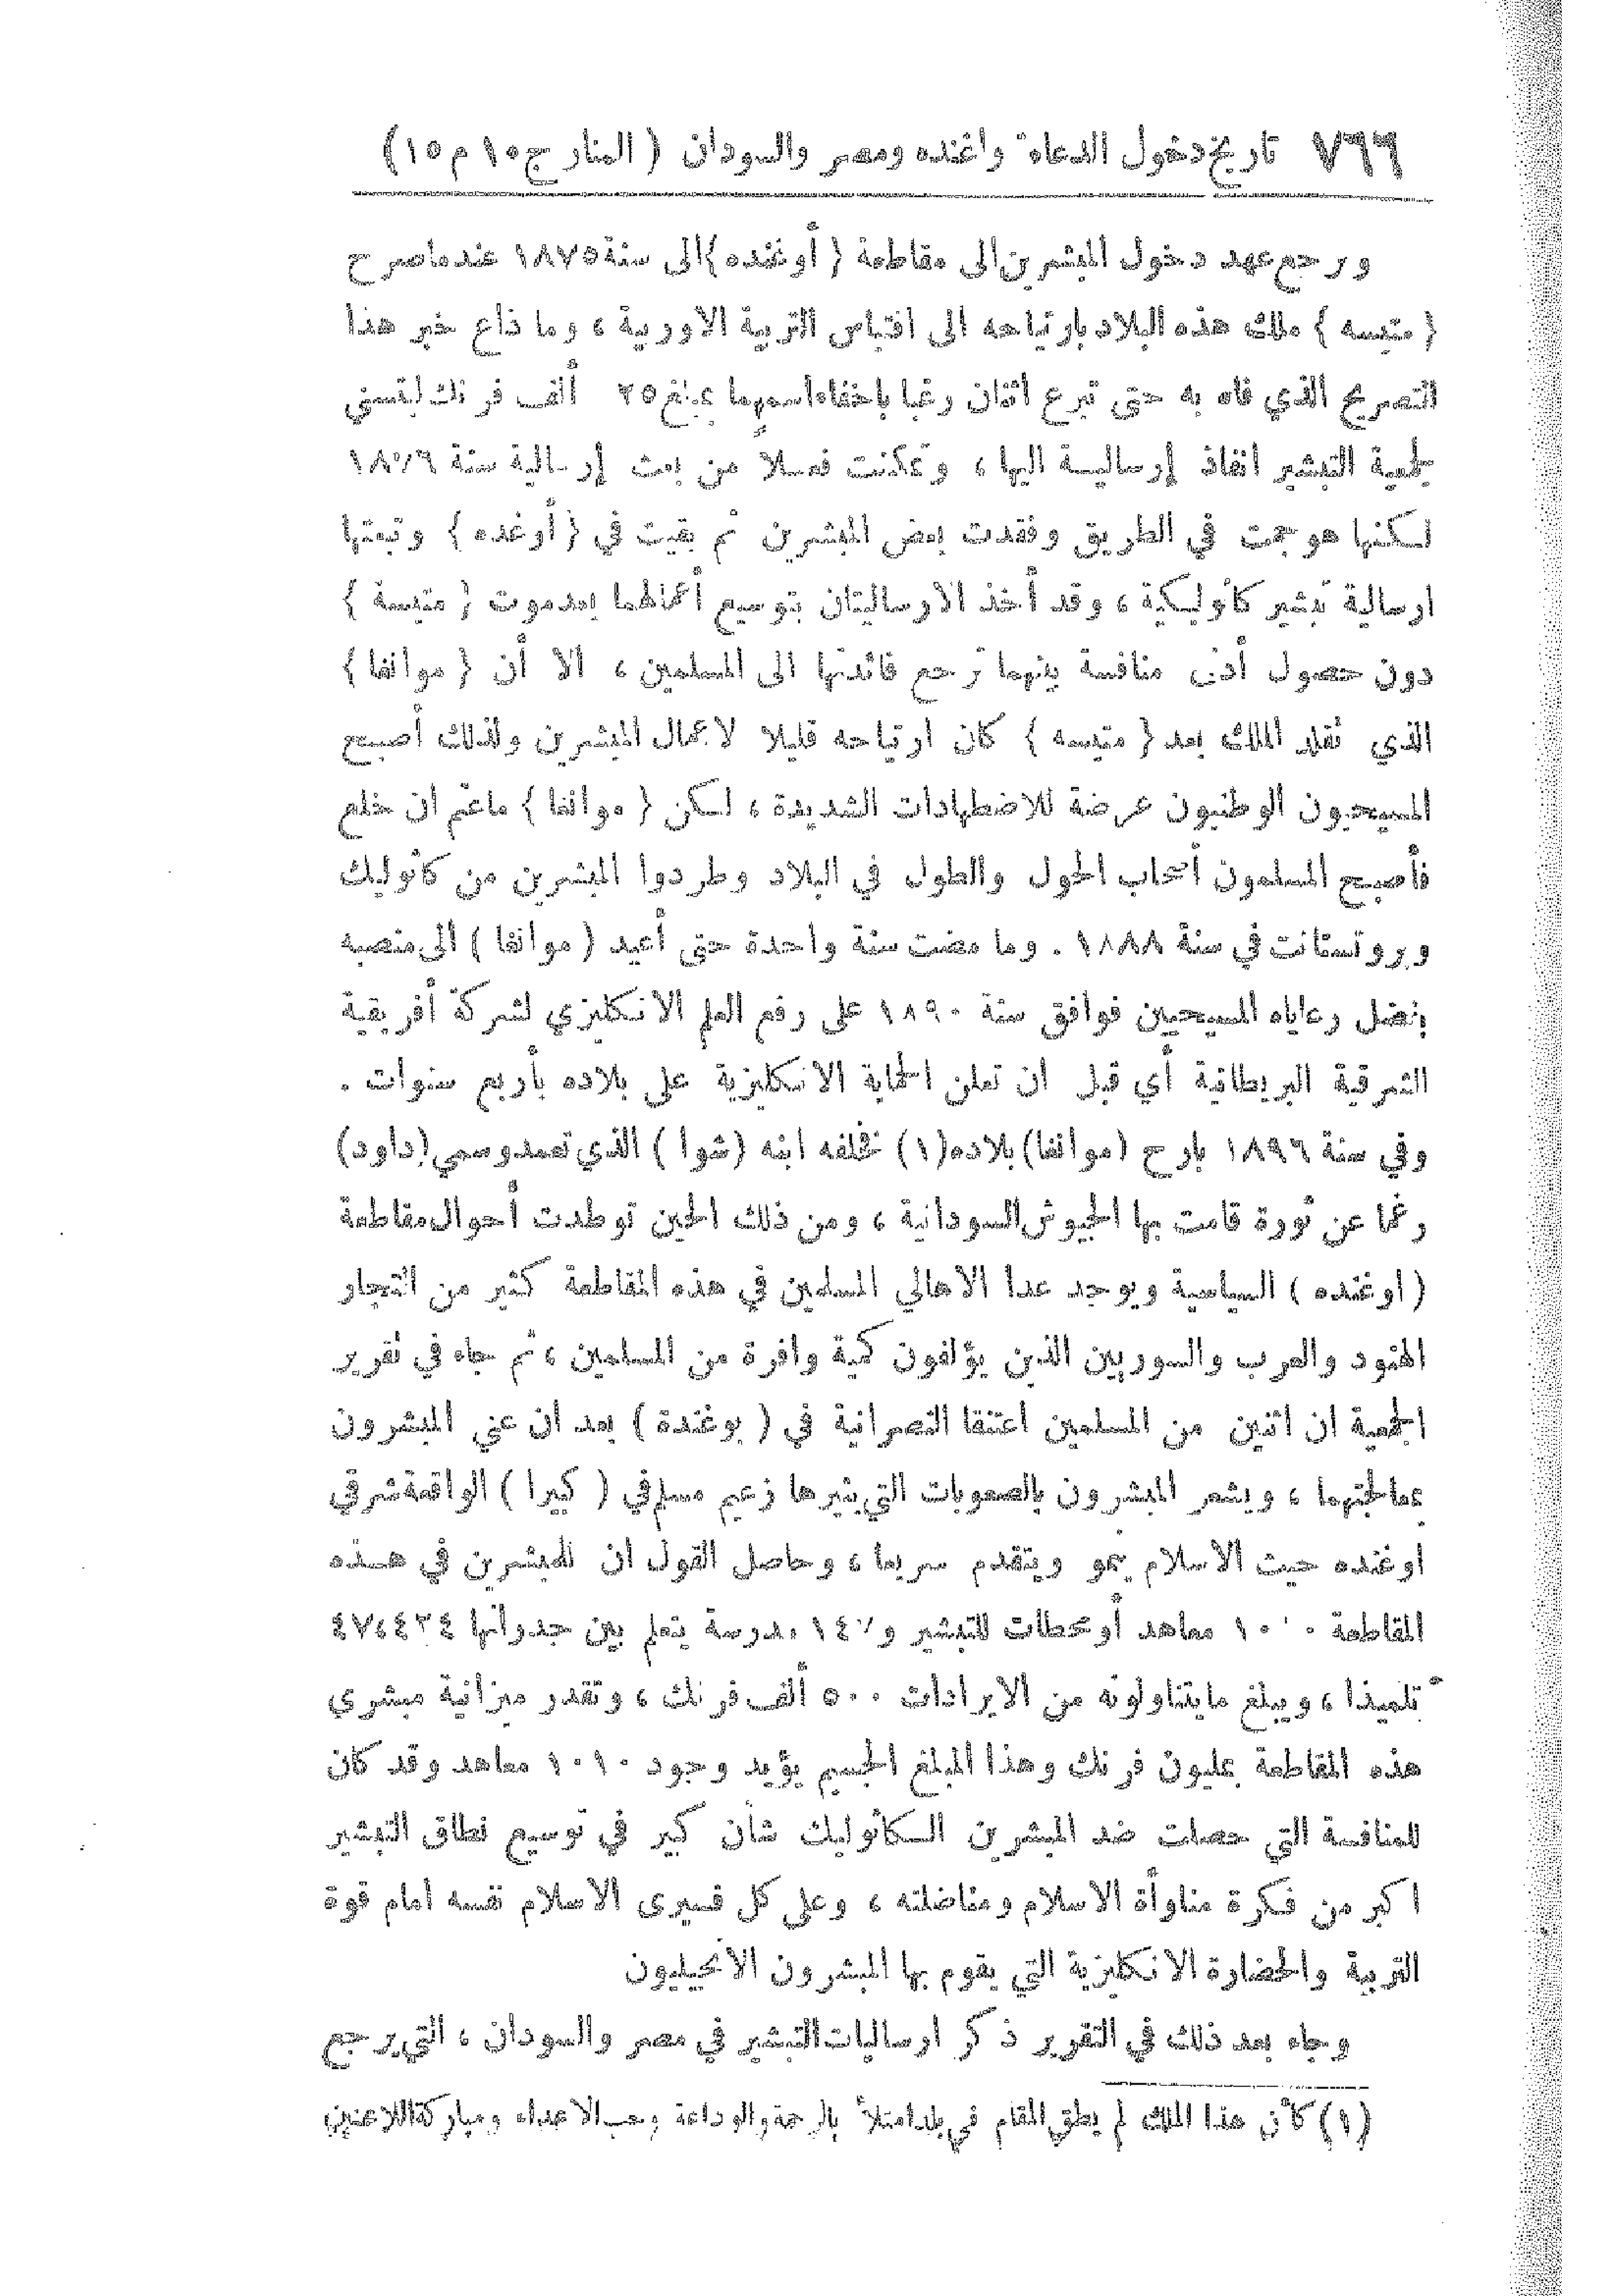 ٧٦٦ تاريخ دخول الدعاة واغنده ومصر والسودان ( المنار ج ١٠ م ١٥)
ورجع عهد دخول المبشرين الى مقاطعة { أوغنده } الى سنة ١٨٧٥ عندما صرح
{ متيسه } ملك هذه البلاد بارتياحه الى اقتباس التربية الاوربية ، وما ذاع خبر هذا
التصريح الذي فاه به حتى تبرع اثنان رغبا باخفاء اسميهما بمبلغ ٢٥ ألف فرنك ليتسنى
لجمعية التبشير انفاذ إرسالية اليها ، وتمكنت فعلاً من بعث إرسالية سنة ١٨٧٦
لكنها هوجمت في الطريق وفقدت بعض المبشرين ثم بقيت في { أوغده } وتبعتها
ارسالية تبشير كاثوليكية ، وقد أخذ الارساليتان بتوسيع أعمالهما بعد موت { متيسة }
دون حصول أدنى منافسة بينهما ترجع فائدتها الى المسلمين ، الا أن { موانغا }
الذي تقلد الملك بعد { متيسه } كان ارتياحه قليلا لاعمال المبشرين ولذلك أصبح
المسيحيون الوطنيون عرضة للاضطهادات الشديدة ، لكن { موانغا } ماعتم ان خلع
فأصبح المسلمون أصحاب الحول والطول في البلاد وطردوا المبشرين من كاثوليك
وبروتستانت في سنة ١٨٨٨ . وما مضت سنة واحدة حتى أعيد ( موانغا ) الى منصبه
بفضل رعاياه المسيحيين فوافق سنة ١٨٩٠ على رفع العلم الانكليزي لشركة أفريقية
الشرقية البريطانية أي قبل ان تعلن الحماية الانكليزية على بلاده بأربع سنوات .
وفي سنة ١٨٩٦ بارح (موانغا) بلاده(١) فخلفه ابنه (شوا ) الذي تعمد وسمي (داود)
رغما عن ثورة قامت بها الجيوش السودانية ، ومن ذلك الحين توطدت أحوال مقاطعة
( اوغنده ) السياسية ويوجد عدا الاهالي المسلمين في هذه المقاطعة كثير من التجار
الهنود والعرب والسوريين الذين يؤلفون كمية وافرة من المسلمين ، ثم جاء في تقرير
الجمعية ان اثنين من المسلمين اعتنقا النصرانية في ( بوغندة ) بعد ان عني المبشرون
بمعالجتهما ، ويشعر المبشرون بالصعوبات التي يثيرها زعيم مسلم في ( كيرا ) الواقعة شرقي
اوغنده حيث الاسلام ينمو ويتقدم سريعا ، وحاصل القول ان للمبشرين في هذه
المقاطعة معاهد أو محطات للتبشير و مدرسة يتعلم بين جدرانها ٤٧،٤٣٤
تلميذا ، ويبلغ مايتناولونه من الايرادات ٥٠٠ ألف فرنك ، وتقدر ميزانية مبشري
هذه المقاطعة بمليون فرنك وهذا المبلغ الجسيم يؤيد وجود ١٠١٠ معاهد وقد كان
للمنافسة التي حصلت ضد المبشرين الكاثوليك شأن كبير في توسيع نطاق التبشير
اكبر من فكرة مناوأة الاسلام ومناضلته ، وعلى كل فسيرى الاسلام نفسه امام قوة
التربية والحضارة الانكليزية التي يقوم بها المبشرون الانجيليون
وجاء بعد ذلك في التقرير ذكر ارساليات التبشير في مصر والسودان ، التي يرجع
(١) كأن هذا الملك لم يطق المقام في بلد امتلأ بالرحمة والوداعة وحب الاعداء ومباركة اللاعنين